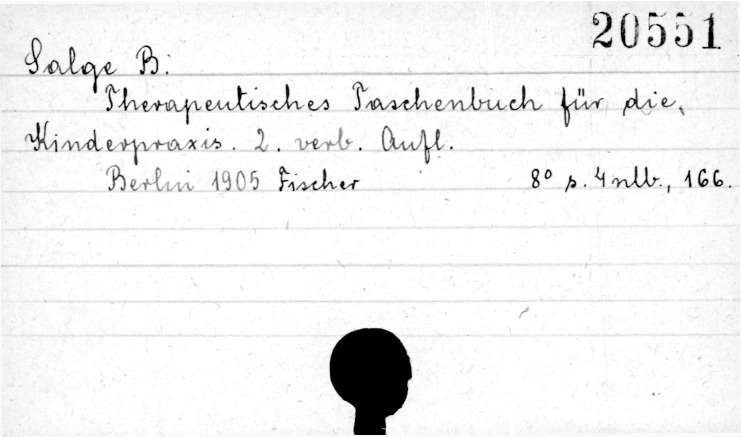 20551
Salge B.
Therapeutisches Taschenbuch für die
Kinderpraxis. 2. verb. Aufl.
Berlin 1905 Fischer 8° s. 4 nlb., 166.